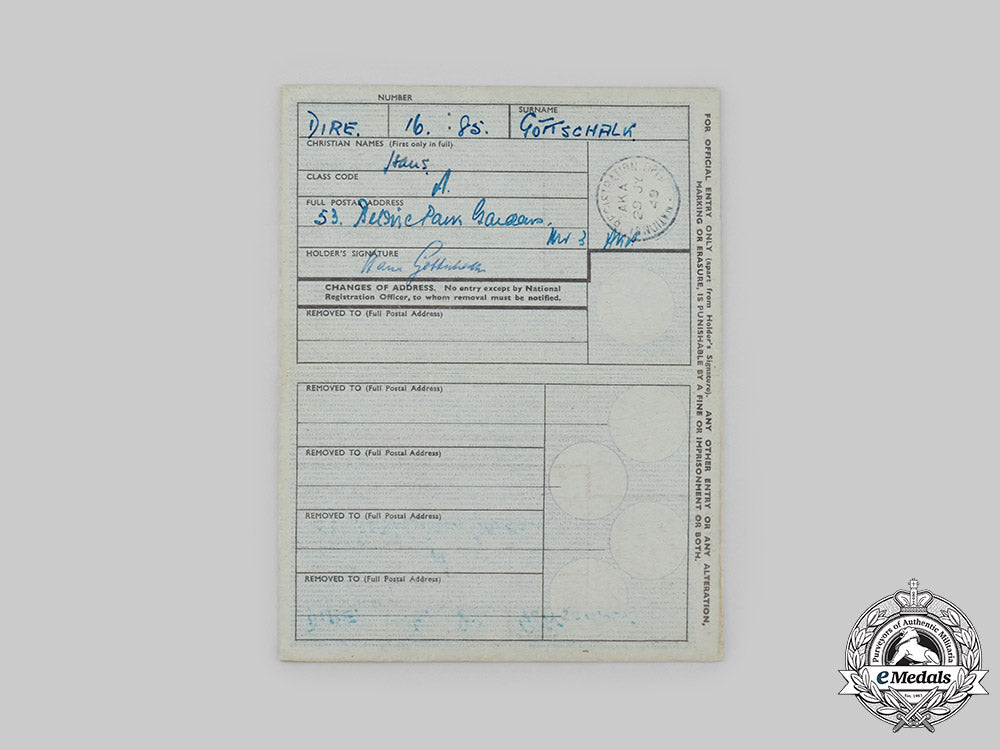 NUMBER
SURNAME
DIRE. 16. : 85. GOTTSCHALK
CHRISTIAN NAMES (First only in full)
Hans.
CLASS CODE
A.
FULL POSTAL ADDRESS
53. Belsize Park Gardens.
NW 3
HOLDER'S SIGNATURE
Hans Gottschalk
NATIONAL REGISTRATION
AKA
29 JY
49
CHANGES OF ADDRESS. No entry except by National
Registration Officer, to whom removal must be notified.
REMOVED TO (Full Postal Address)
REMOVED TO (Full Postal Address)
REMOVED TO (Full Postal Address)
REMOVED TO (Full Postal Address)
REMOVED TO (Full Postal Address)
FOR OFFICIAL ENTRY ONLY (apart from Holder's Signature). ANY OTHER ENTRY OR ANY ALTERATION,
MARKING OR ERASURE, IS PUNISHABLE BY A FINE OR IMPRISONMENT OR BOTH.
Purveyors of Authentic Militaria
eMedals